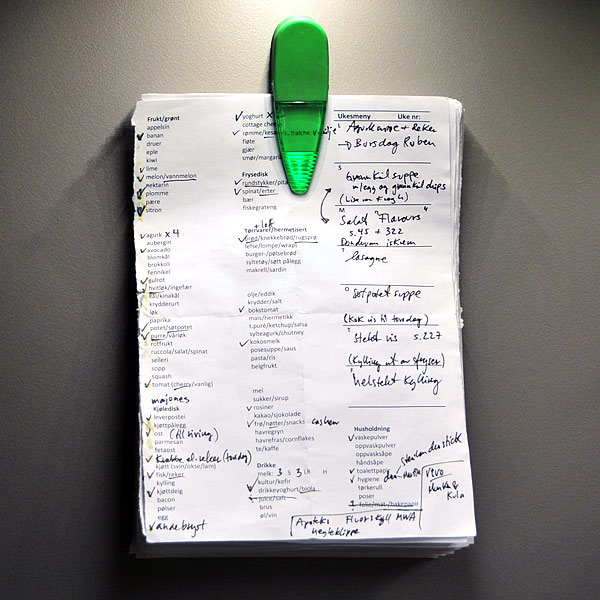 Frukt/grønt
appelsin
banan
druer
eple
kiwi
lime
melon/vannmelon
nektarin
plomme
pære
sitron
agurk x 4
aubergin
avocado
blomkål
brokkoli
fennikel
gulrot
hvitløk/ingefær
kål/kinakål
krydderurt
løk
paprika
potet/søtpotet
purre/vårløk
rotfrukt
ruccola/salat/spinat
selleri
sopp
squash
tomat (cherry/vanlig)
majones
Kjøledisk
leverpostei
kjøttpålegg
ost (til riving)
parmesan
fetaost
Krabbe el. reker (torsdag)
kjøtt (svin/okse/lam)
fisk/reker
kylling
kjøttdeig
bacon
pølser
egg
andebryst
yoghurt x
cottage cheese
rømme/kesam/c. fraiche
fløte
gjær
smør/margarin
Frysedisk
rundstykker/pita
spinat/erter
bær
fiskegrateng
+ loff
Tørrvarer/hermetisert
brød/knekkebrød/rugsprø
lefse/lompe/wraps
burger-/pølsebrød
syltetøy/søtt pålegg
makrell/sardin
olje/eddik
krydder/salt
bokstomat
mais/hermetikk
t.puré/ketchup/salsa
sylteagurk/chutney
kokosmelk
posesuppe/saus
pasta/ris
belgfrukt
mel
sukker/sirup
rosiner
kakao/sjokolade
frø/nøtter/snacks cashew
havregryn
havrefras/cornflakes
te/kaffe
Drikke
melk: 3 S 3 LR H
kultur/kefir
drikkeyoghurt/biola
juice/saft
brus
øl/vin
Ukesmeny Uke nr:
+ Reker
→ Bursdag Ruben
S
Grønnkålsuppe
m/egg og grønnkålchips
M
Salat "Flavours"
s. 45 + 322
T
lasagne
O
Søtpotetsuppe
(Kok ris til torsdag)
T
Stekt ris s. 227
(Kylling ut av fryser)
F
helstekt kylling
Husholdning
vaskepulver
oppvaskpulver
oppvasksåpe
håndsåpe
toalettpapir
hygiene
tørkerull
poser
folie/mat-/bakepapir
Apotek: Fluorskyll MWA
negleklippe